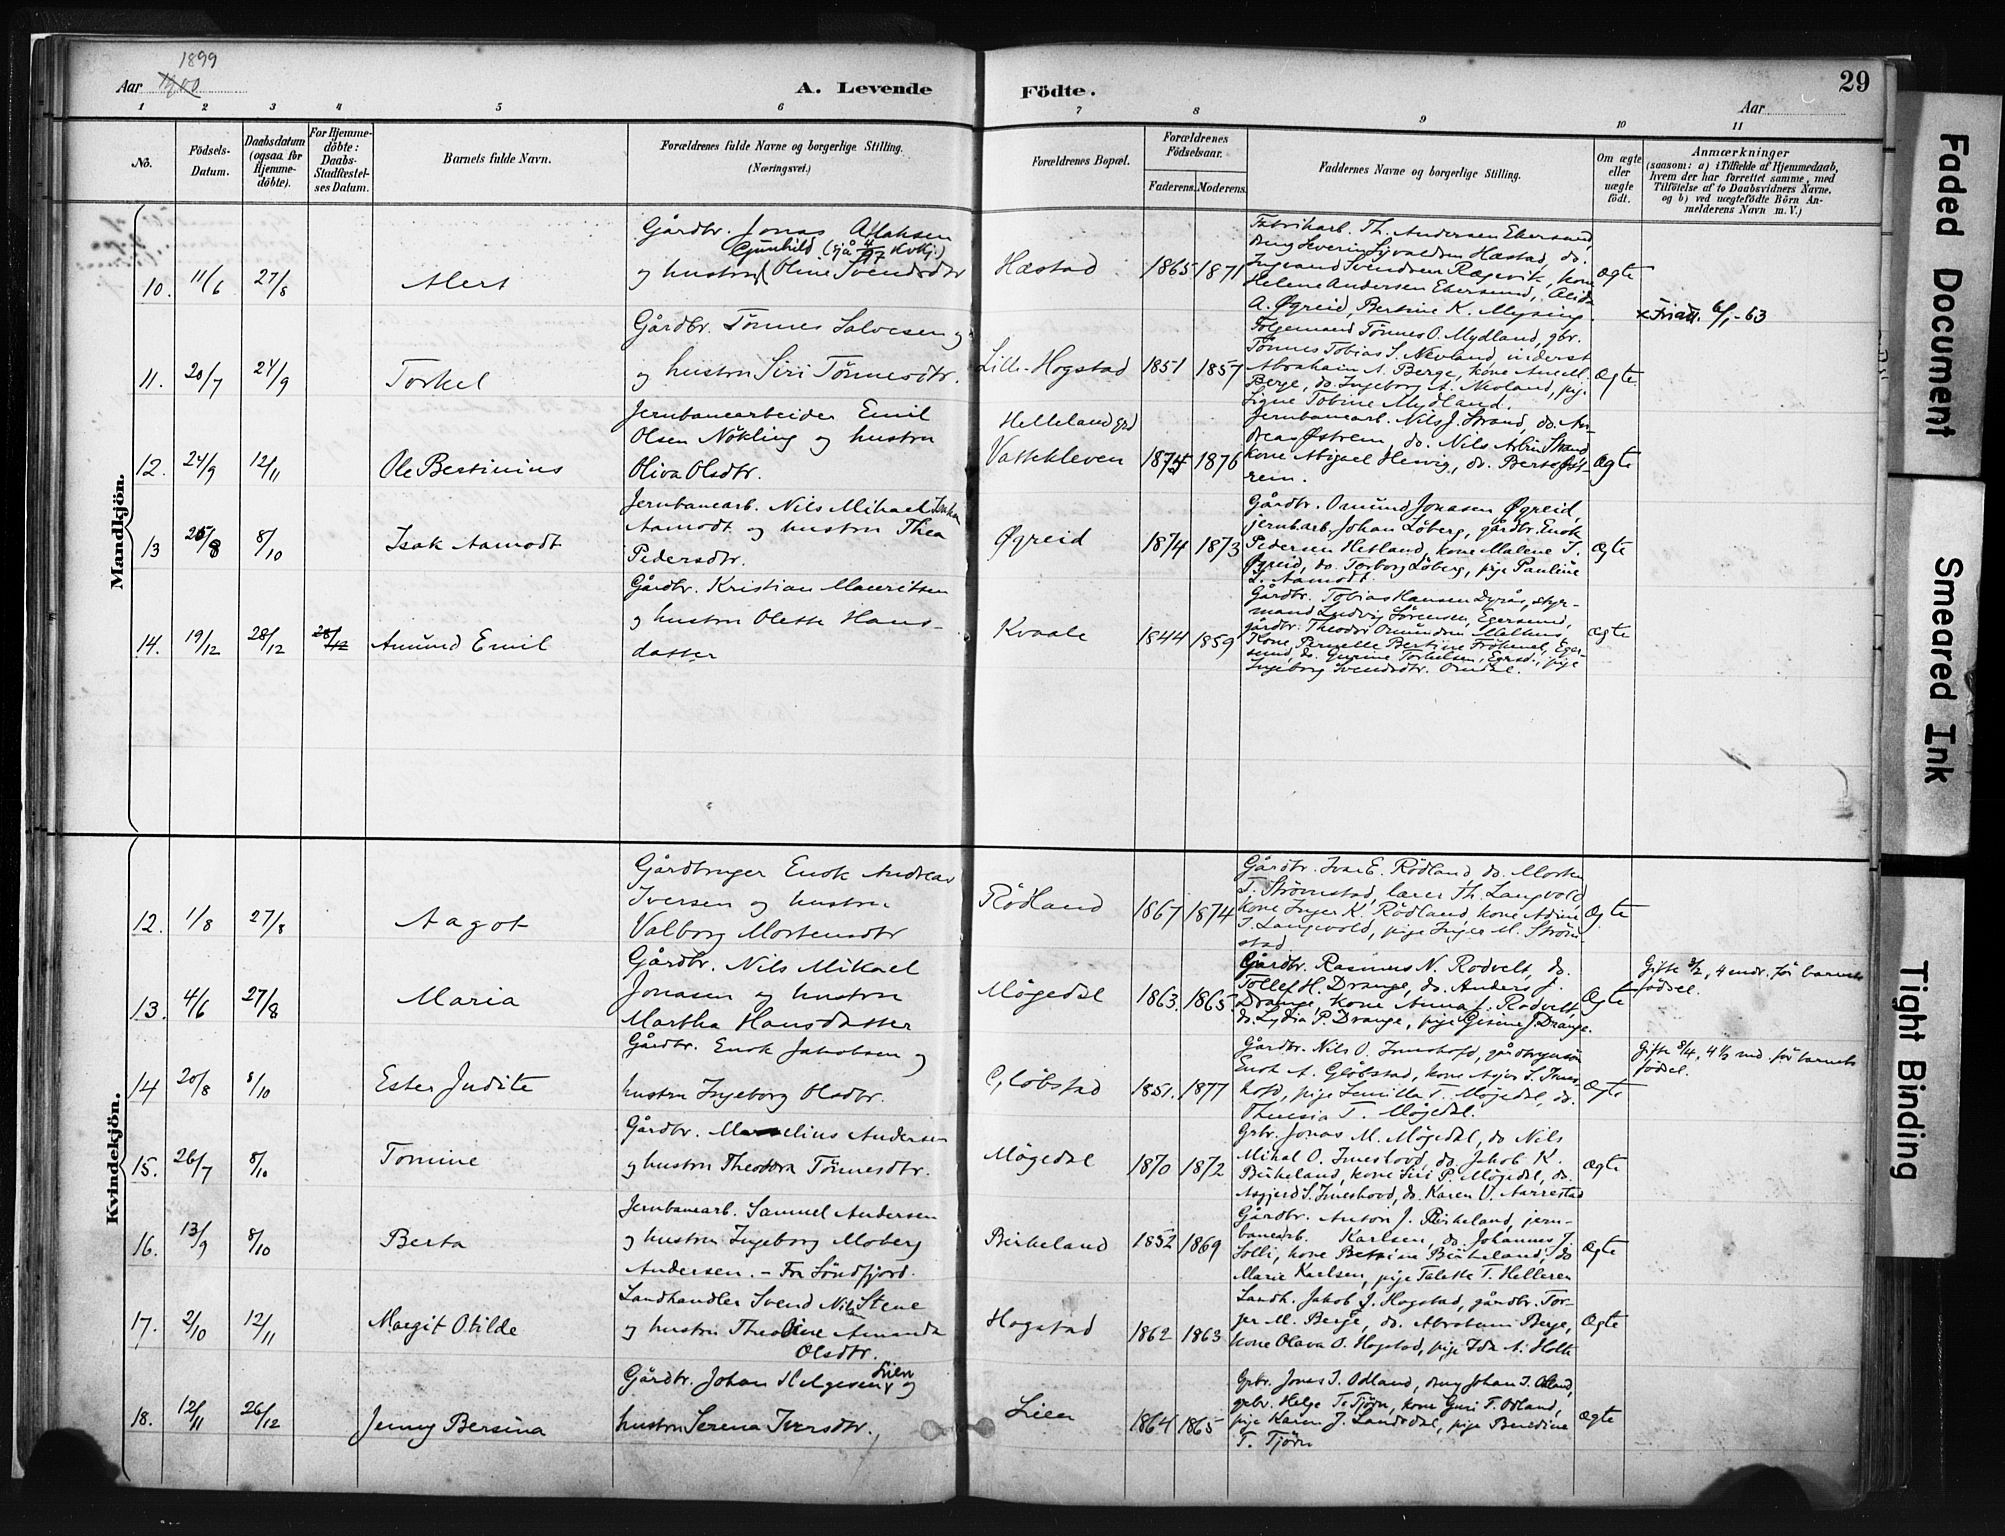 1899
Aar 1900
A. Levende
Födte.
29
Aar
1 2 3 4 5 6 7 8 9 10 11
No.
Födsels-
Datum.
Daabsdatum
(ogsaa for
Hjemme-
döbte).
For Hjemme-
döbte:
Daabs-
Stadfæstel-
ses Datum.
Barnets fulde Navn.
Forældrenes fulde Navne og borgerlige Stilling.
(Næringsvei.)
Forældrenes Bopæl.
Forældrenes
Födselsaar.
Faderens. Moderens.
Faddernes Navne og borgerlige Stilling.
Om ægte
eller
uægte
födt.
Anmærkninger
(saasom: a) i Tilfælde af Hjemmedaab,
hvem der har forrettet samme, med
Tilföielse af to Daabsvidners Navne,
og b) ved uægtefödte Börn An-
melderens Navn m. V.)
Mandkjön.
10. 11/6 27/8 Alert
Gårdbr. Jonas Aslaksen
Gunhild (sjå 4/17 Kvkj.)
og hustru Oline Svendsdtr
Hæstad 1865 1871
Fabrikarb. Th. Andersen Ekersund,
ung Severin Syvaldsen Hæstad, do.
Ingvand Svendsen Rægevik, kone
Helene Andersen Ekersund, Alida
A. Øgreid, Bertine K. Mysing.
ægte
11. 20/7 24/9 Torkel
Gårdbr. Tønnes Salvesen og
og hustru Siri Tønnesdtr.
Lille-Hogstad 1851 1857
Folgemand Tønnes O. Mydland, gbr.
Tønnes Tobias S. Nevland, inderst
Abraham A. Berge, kone Ane M.
Berge, do. Ingeborg A. Nevland, pige
Signe Tobine Mydland.
Ægte
12. 24/9 12/11 Ole Bertinius
Jernbanearbeider Emil
Olsen Nøkling og hustru
Oliva Olsdtr.
Helleland grd
Vattekleven 1874 1876
Jernbanearb. Nils J. Strand, do. An-
dreas Østrem, do. Nils Albin Strand
kone Abigael Hesvig, do. Berte Øst-
rem.
Ægte
13 25/8 8/10 Isak Aamodt
Jernbanearb. Nils Mikael
Aamodt og hustru Thea
Pedersdtr.
Øgreid 1874 1873
Gårdbr. Omund Jonasen Øgreid,
jernb.arb. Johan Løberg, gårdbr. Enok
Pedersen Hetland, kone Malene T.
Øgreid, do. Torborg Løberg, pige Pauline
I. Aamodt.
Ægte
14. 19/12 28/12 28/12 Amund Emil
Gårdbr. Kristian Mauritsen
og hustru Olette Hans-
datter
Kvaale 1844 1859
Gårdbr. Tobias Hansen Dyrås, styr-
mand Ludvig Sörensen, Egersund,
gårdbr. Theodor Omundsen
Kone Pernelle Bertine Frökenel, Eger-
sund, do. Gurine Torkelsen, Egersd., pige
Ingeborg Svendsdtr. Omdal.
ægte
Kvindekjön.
12. 1/8 27/8 Aagot
Gårdbruger Enok Andreas
Iversen og hustru
Valborg Mortensdtr
Rödland 1867 1874
Gårdbr. Ivar E. Rödland, do. Morten
T. Strömstad, lærer Th. Langvold,
kone Inger K. Rödland, kone Adine
T. Langvold, pige Inger M. Ström-
stad
Ægte
13. 4/6 27/8 Maria
Gårdbr. Nils Mikael
Jonasen og hustru
Martha Hansdatter
Mögedal 1863. 1865.
Gårdbr. Rasmus N. Rodvelt, do.
Tollef H. Drange, do. Anders J.
Drange, kone Anna J. Rodvelt,
do. Lydia P. Drange, pige Gesine J. Drange.
Ægte
Gifte 3/2, 4 mdr. før barnets
fødsel.
14 20/8 8/10 Ester Judite
Gårdbr. Enok Jakobsen og
hustru Ingeborg Olsdtr.
Glöbstad 1851. 1877
Gårdbr. Nils O. Imeshofd, gårdbrgerssön
Enok A. Glöbstad, kone Asjer S. Imes-
hofd, pige Semilla T. Mögedal, do.
Theresia T. Mögedal.
Ægte
Gifte 8/4, 4 1/2 md. før barnets
fødsel.
15. 26/7 8/10 Tomine
Gårdbr. Marselius Andersen
og hustru Theodora Tönnesdtr.
Mögedal 1870 1872
Grbr. Jonas M. Mögedal, do Nils
Mikal O. Imeshovd, do. Jakob K.
Birkeland, kone Siri P. Mögedal, do.
Asgjerd S. Imeshovd, do. Karen V. Aarrestad
ægte
16. 13/9 8/10 Berta
Jernbanearb. Samuel Andersen
og hustru Ingeborg Moberg
Andersen. – Fra Söndfjord.
Birkeland 1852 1869
Gårdbr. Anton J. Birkeland, jern-
banearb. Karlsen, do. Johannes J.
Solli, kone Bettine Birkeland, do
Marie Karlsen, pige Talette T. Helleren
Ægte
17. 2/10 12/11 Margit Otilde
Landhandler Svend Nils Stene
og hustru Theoline Amanda
Olsdtr.
Hogstad 1862 1863
Landh. Jakob J. Hogstad, gårdbr. Tor-
ger M. Berge, do. Abraham Berge,
kone Olava O. Hogstad, pige Ida A. Holte
Ægte
18. 12/11 26/12 Jenny Bersina
Gårdbr. Johan Helgesen Lien og
hustru Serena Iversdtr.
Lien 1864 1865
Grbr. Jonas T. Odland, ung Johan T. Odland,
grbr. Helge T. Tjörn, kone Guri T. Odland,
pige Karen J. Landsdal, pige Benedine
T. Tjörn
ægte
Faded Document
Smeared Ink
Tight Binding